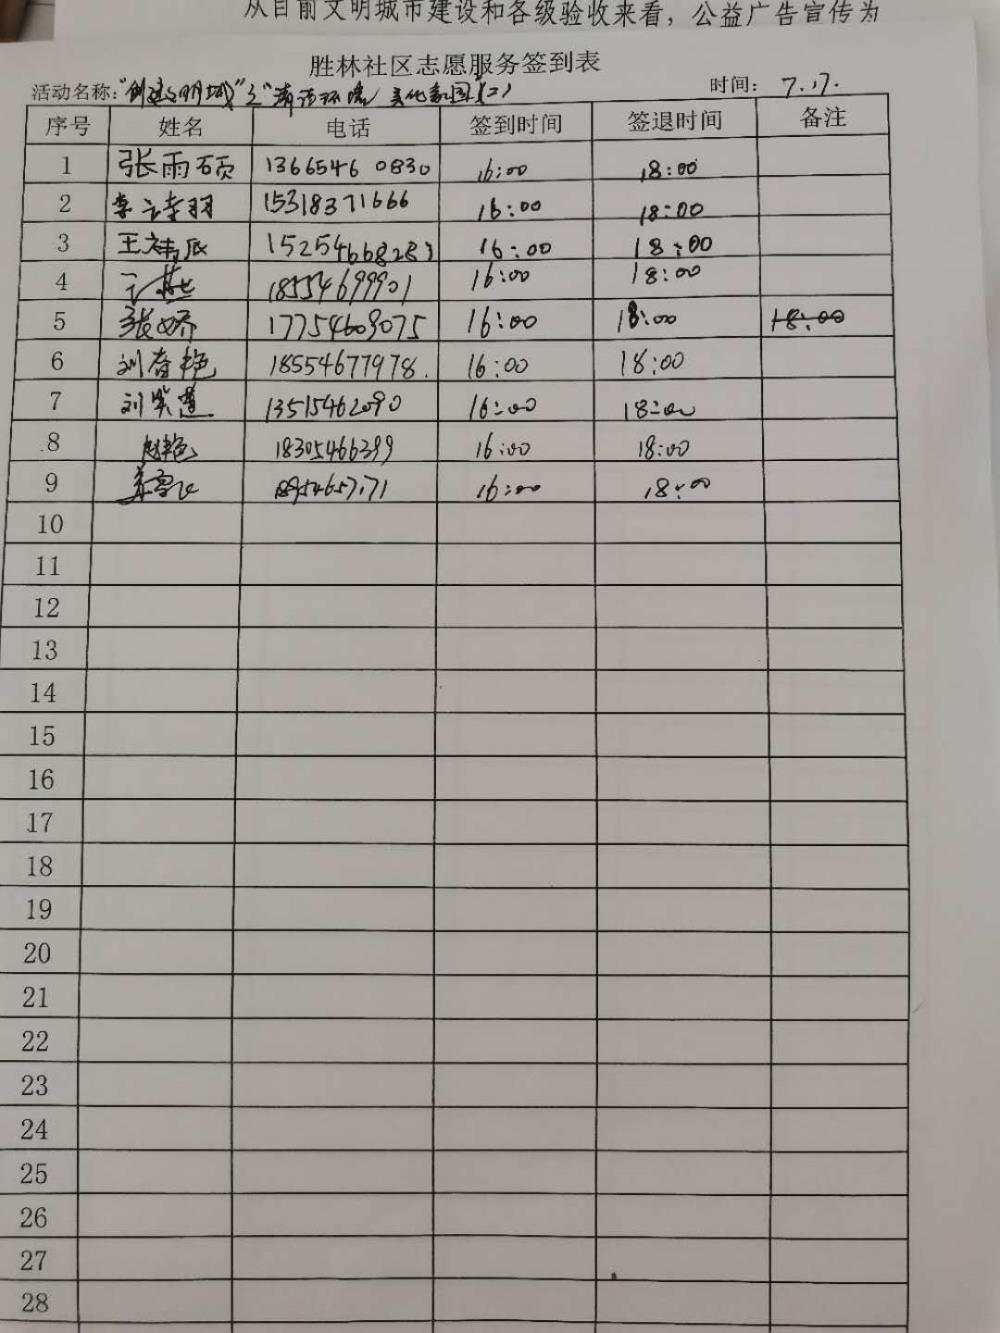 从目前文明城市建设和各级验收来看，公益广告宣传为
胜林社区志愿服务签到表
活动名称："创建文明城"之"清洁环境 美化家园"(二) 时间： 7.17.
序号 姓名 电话 签到时间 签退时间 备注
1 张雨硕 13665460830 16:00 18:00
2 李诗羽 15318371666 16:00 18:00
3 王祎辰 15254668283 16:00 18:00
4 18554699901 16:00 18:00
5 张娇 17754609075 16:00 18:00 18:00
6 刘春艳 18554677978. 16:00 18:00
7 刘 莲 13515462090 16:00 18:00
8 赵艳 18305466399 16:00 18:00
9 18954657171 16:00 18:00
10
11
12
13
14
15
16
17
18
19
20
21
22
23
24
25
26
27
28